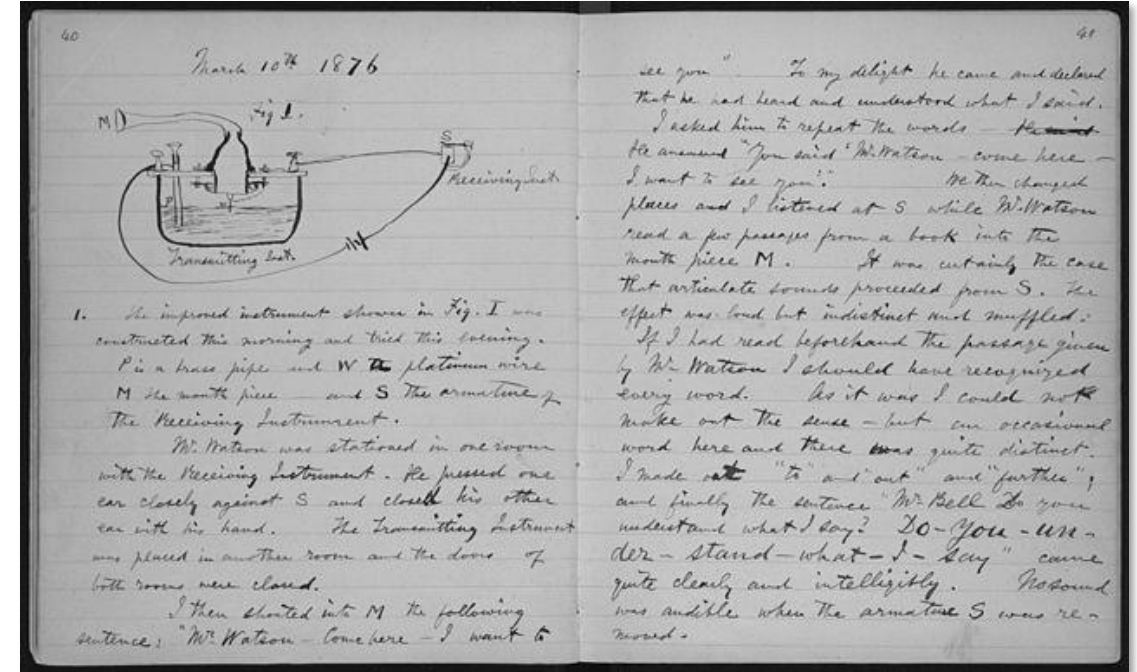 40
March 10th 1876
Fig 1.
M
S
Receiving Inst.
P
W
Transmitting Inst.
1. The improved instrument shown in Fig. I was
constructed this morning and tried this evening.
P is a brass pipe and W the platinum wire
M the mouth piece — and S the armature of
the Receiving Instrument.
Mr. Watson was stationed in one room
with the Receiving Instrument. He pressed one
ear closely against S and closed his other
ear with his hand. The Transmitting Instrument
was placed in another room and the doors of
both rooms were closed.
I then shouted into M the following
sentence: "Mr. Watson — Come here — I want to
41
see you". To my delight he came and declared
that he had heard and understood what I said.
I asked him to repeat the words —
He answered "You said 'Mr. Watson — come here —
I want to see you'." We then changed
places and I listened at S while Mr. Watson
read a few passages from a book into the
mouth piece M. It was certainly the case
that articulate sounds proceeded from S. The
effect was loud but indistinct and muffled.
If I had read beforehand the passage given
by Mr. Watson I should have recognized
every word. As it was I could not
make out the sense — but an occasional
word here and there was quite distinct.
I made out "to" and "out" and "further";
and finally the sentence "Mr. Bell Do you
understand what I say? Do – you – un –
der – stand – what – I – say" came
quite clearly and intelligibly. No sound
was audible when the armature S was re –
moved.